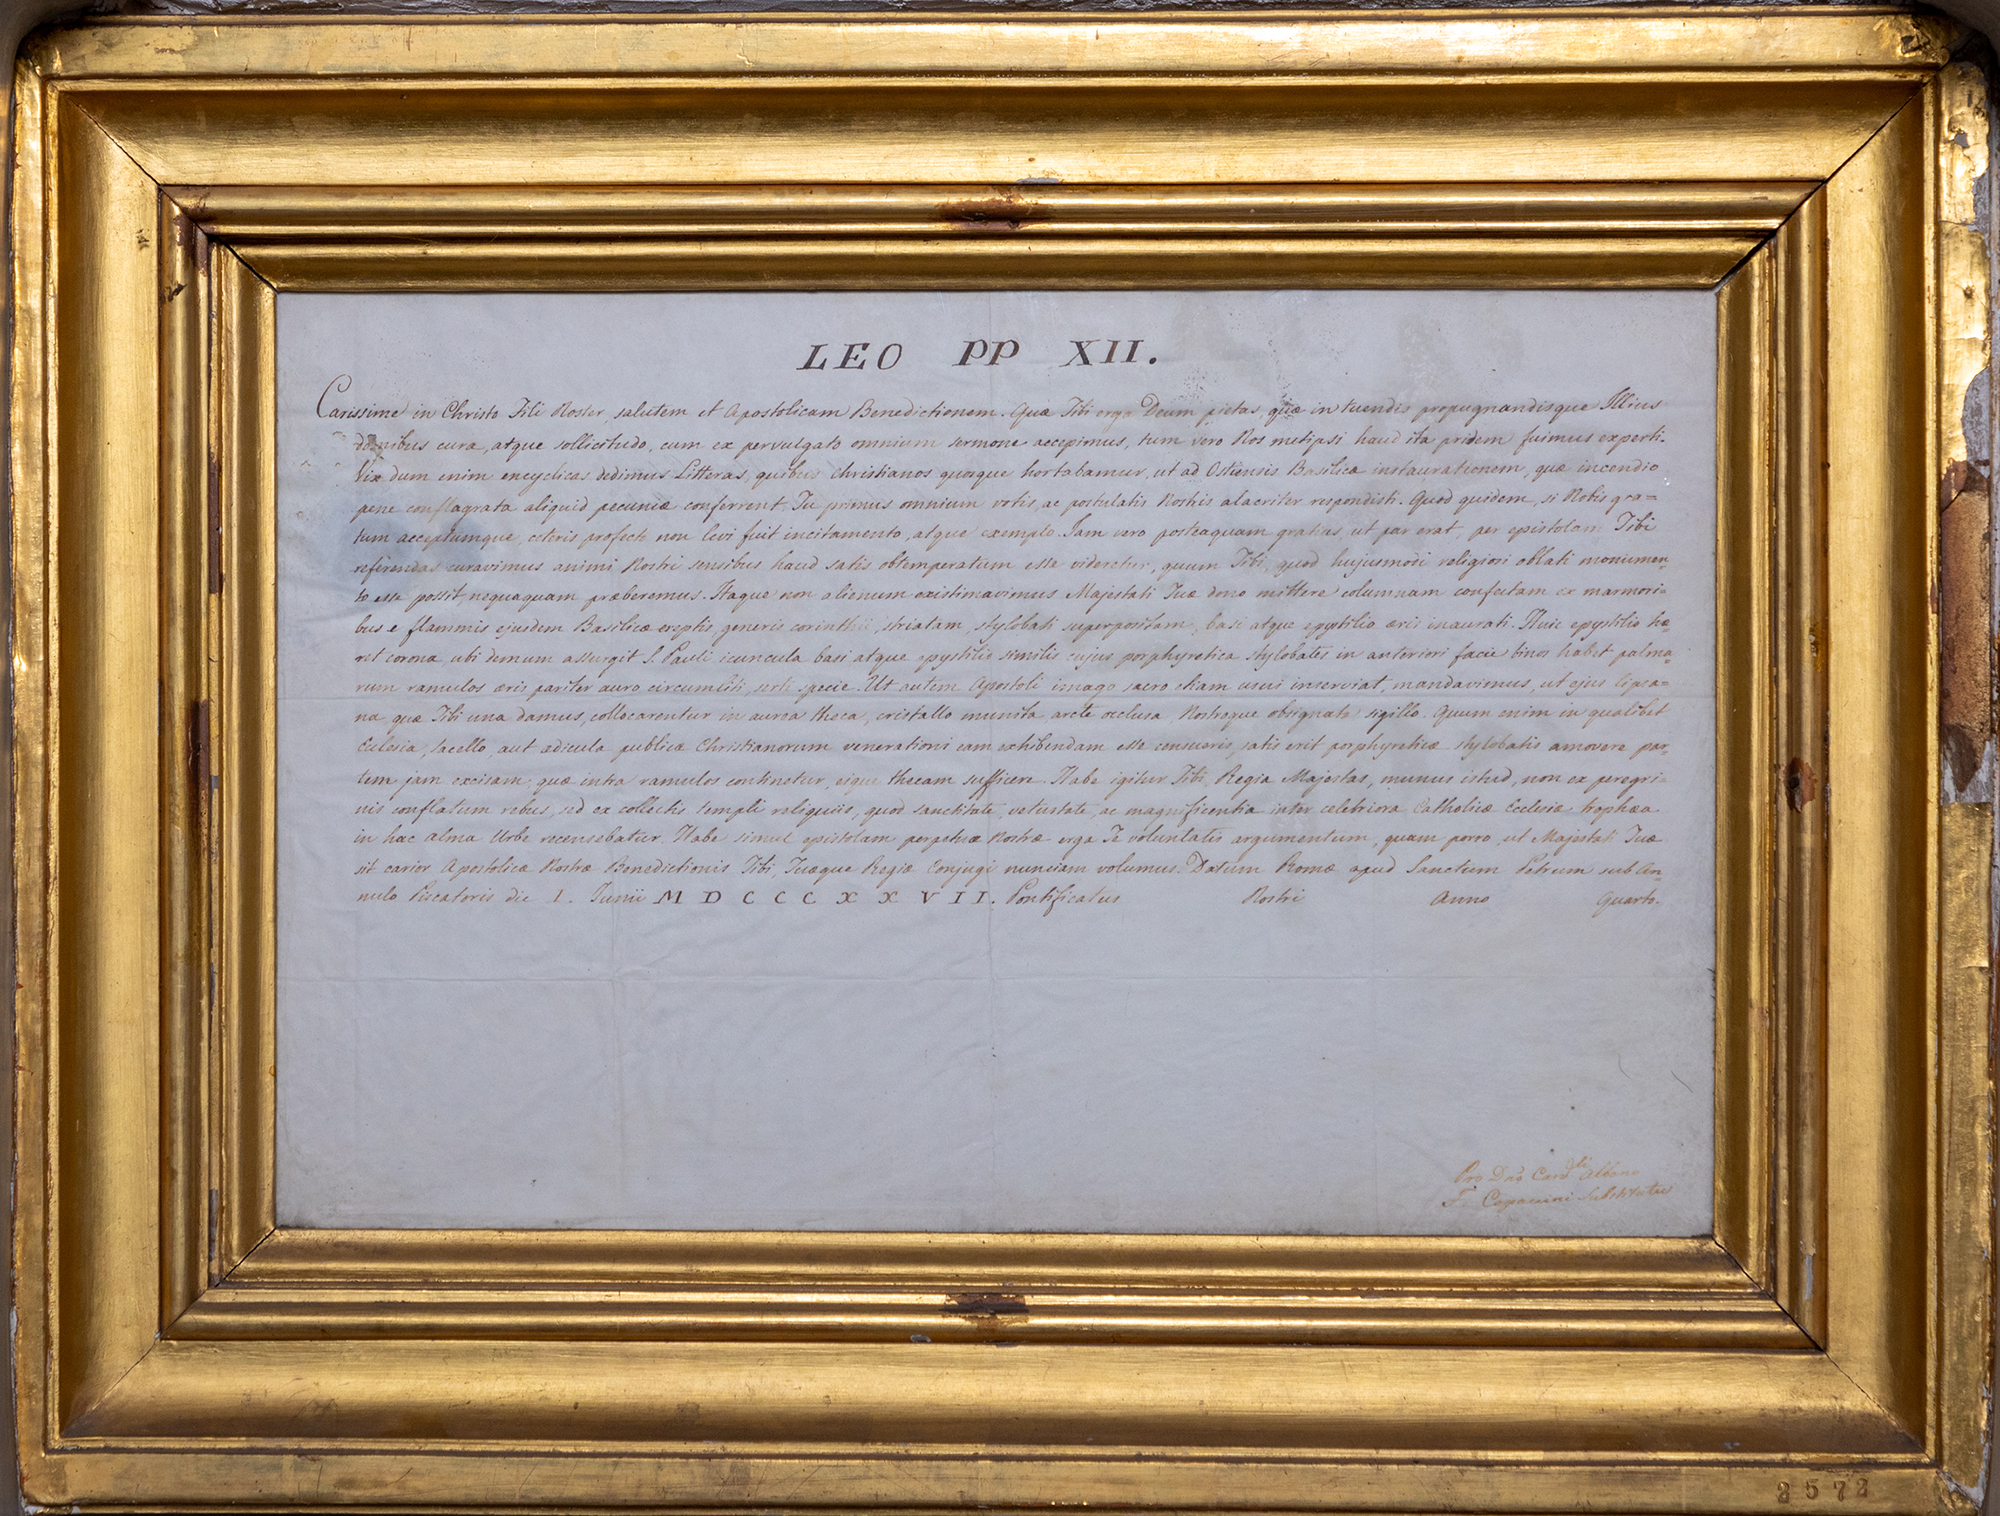 LEO PP XII.
Carissime in Christo Fili Noster, salutem et Apostolicam Benedictionem. Quæ Tibi erga Deum pietas, quæ in tuendis propugnandisque Illius
cura, atque sollicitudo, cum ex pervulgato omnium sermone accepimus, tum vero Nos metipsi haud ita pridem fuimus experti.
Vix dum enim encyclicas dedimus Litteras, quibus Christianos quosque hortabamur, ut ad Ostiensis Basilicæ instaurationem, quæ incendio
pene conflagrata aliquid pecuniæ conferrent, Tu primus omnium votis ac postulatis Nostris alacriter respondisti. Quod quidem, si Nobis gra=
tum acceptumque, ceteris profecto non levi fuit incitamento, atque exemplo. Iam vero posteaquam gratias, ut par erat, per epistolam Tibi
referendas curavimus animi Nostri sensibus haud satis obtemperatum esse videretur, quum Tibi, quod hujusmodi religiosi oblati monumen=
to esse possit, nequaquam præberemus. Itaque non alienum existimavimus Majestati Tuæ dono mittere columnam confectam ex marmori=
bus e flammis ejusdem Basilicæ ereptis, generis corinthii, striatam, stylobati superpositam, basi atque epystilio æris inaurati. Huic epystilio hæ=
ret corona, ubi demum assurgit S. Pauli icuncula basi atque epystilio similis cujus porphyretica stylobates in anteriori facie binos habet palma=
rum ramulos æris pariter auro circumliti, serti specie. Ut autem Apostoli imago sacro etiam usui inserviat, mandavimus, ut ejus lipsa=
na, quæ Tibi una damus, collocarentur in aurea theca, cristallo munita arcte occlusa, Nostroque obsignata sigillo. Quum enim in qualibet
Eclesia, sacello, aut ædicula publicæ Christianorum venerationi eam exhibendam esse censueris, satis erit porphyreticæ stylobatis amovere par=
tem jam excisam, quæ intra ramulos continetur, eique thecam sufficere. Habe igitur Tibi, Regia Majestas, munus istud, non ex peregri=
nis conflatum rebus, sed ex collectis templi reliquiis, quod sanctitate, vetustate, ac magnificentia inter celebriora Catholicæ Ecclesiæ trophæa
in hac alma Urbe recensebatur. Habe simul epistolam perpetuæ Nostræ erga Te voluntatis argumentum, quam porro, ut Majestati Tuæ
sit carior Apostolicæ Nostræ Benedictionis Tibi, Tuæque Regiæ Conjugi nunciam volumus. Datum Romæ apud Sanctum Petrum sub An=
nulo Piscatoris die I. Iunii MDCCCXXVII. Pontificatus Nostri Anno Quarto.
Pro Dno Card.li Albano
Capaccini Substitutus
2572